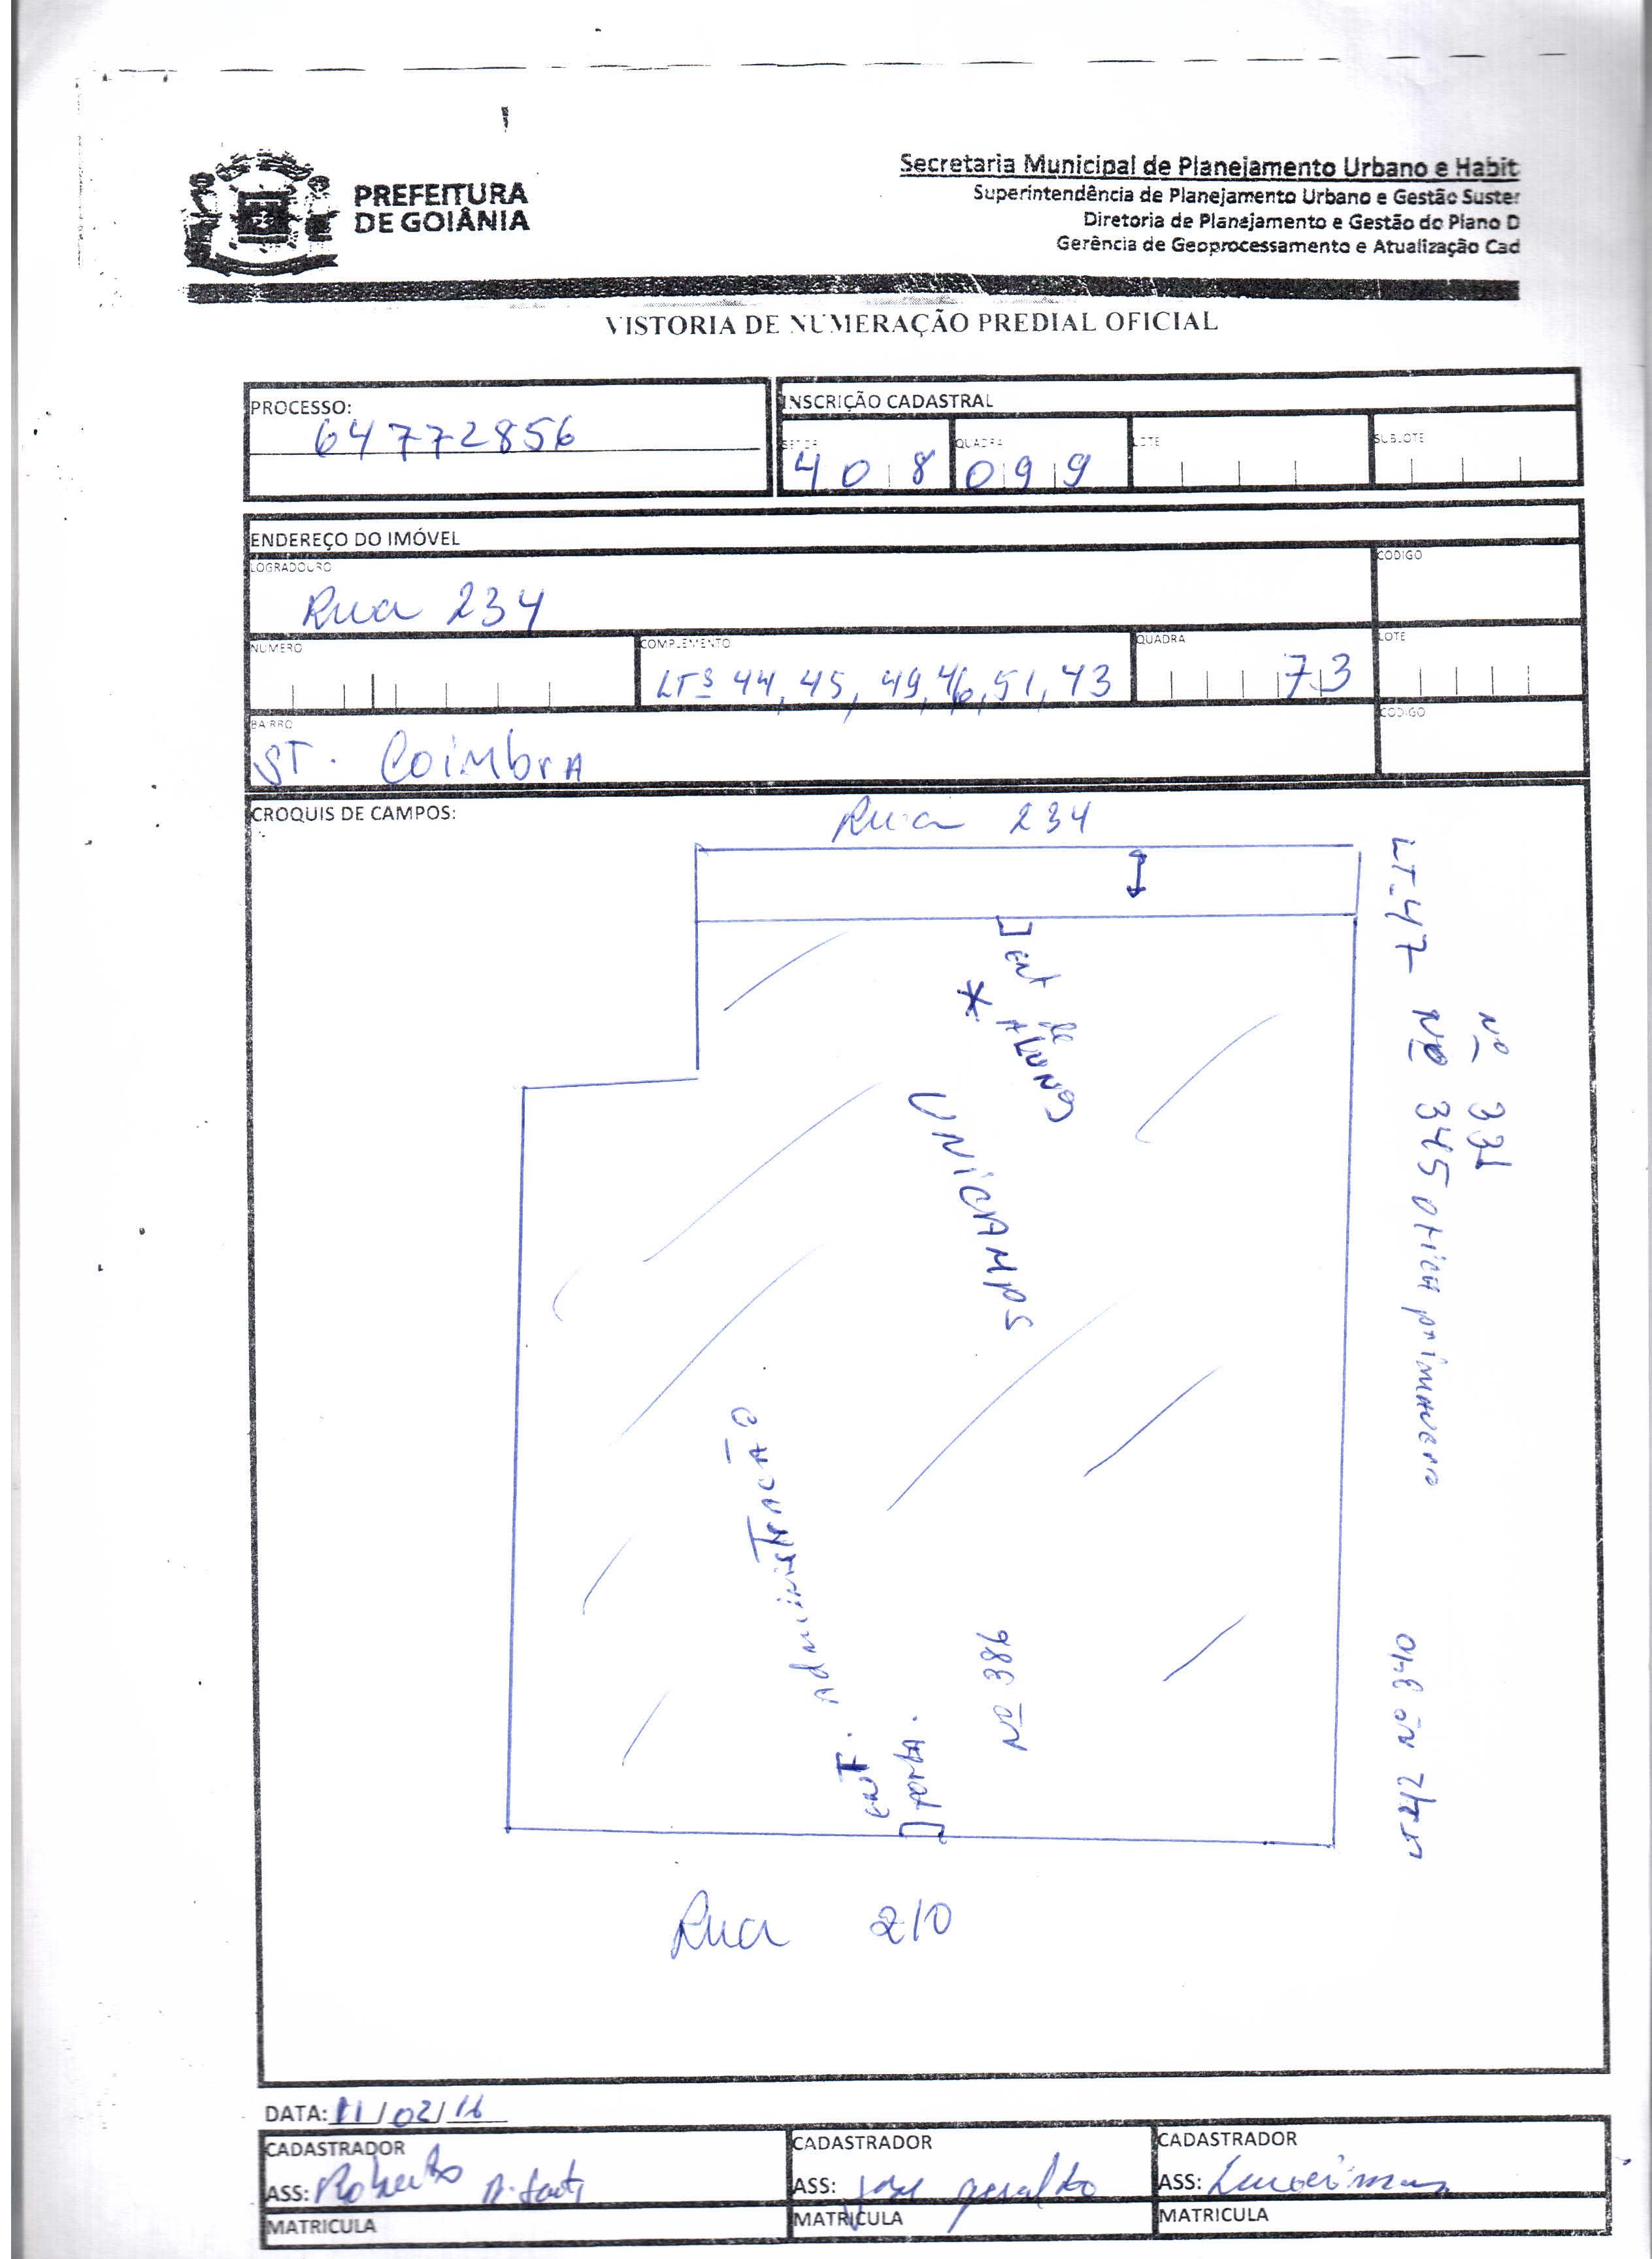 PREFEITURA
DE GOIÂNIA
Secretaria Municipal de Planejamento Urbano e Habit
Superintendência de Planejamento Urbano e Gestão Suster
Diretoria de Planejamento e Gestão do Plano D
Gerência de Geoprocessamento e Atualização Cad
VISTORIA DE NUMERAÇÃO PREDIAL OFICIAL
PROCESSO:
64772856
INSCRIÇÃO CADASTRAL
SETOR QUADRA LOTE SUBLOTE
408 099
ENDEREÇO DO IMÓVEL
LOGRADOURO CODIGO
Rua 234
NUMERO COMPLEMENTO QUADRA LOTE
LTs 44, 45, 49, 46, 51, 43 73
BAIRRO CODIGO
ST. Coimbra
CROQUIS DE CAMPOS:
Rua 234
ent de
* ALUNOS
UNICAMPS
LT-47 Nº 345 Otica primavera
Nº 331
ent. Administração
porta.
Nº 386
Nº 340
Rua 210
DATA: 11/02/16
CADASTRADOR CADASTRADOR CADASTRADOR
ASS: Roberto ASS: Jose geraldo ASS:
MATRICULA MATRICULA MATRICULA